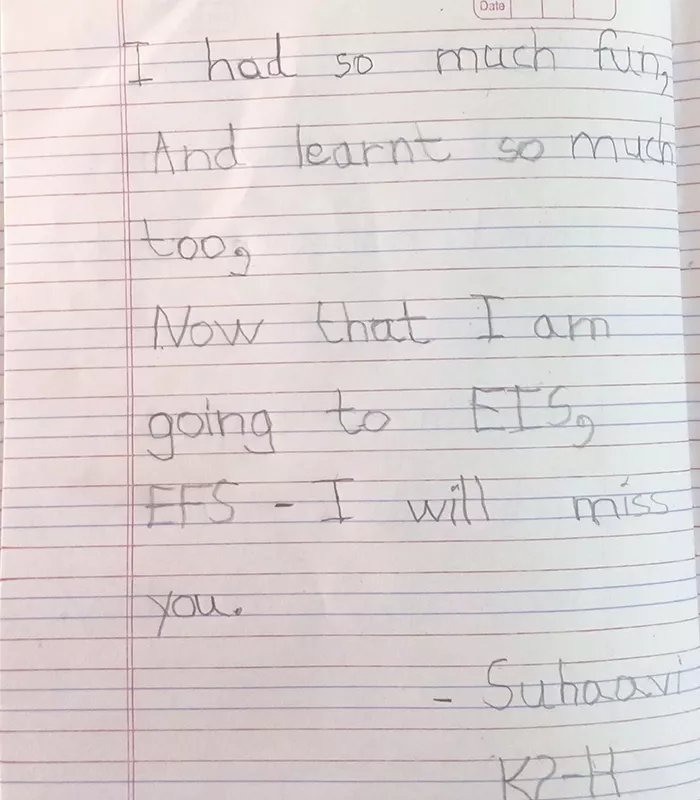 Date
I had so much fun,
And learnt so much
too,
Now that I am
going to EIS,
EFS - I will miss
you.
- Suhaavi
K2-H